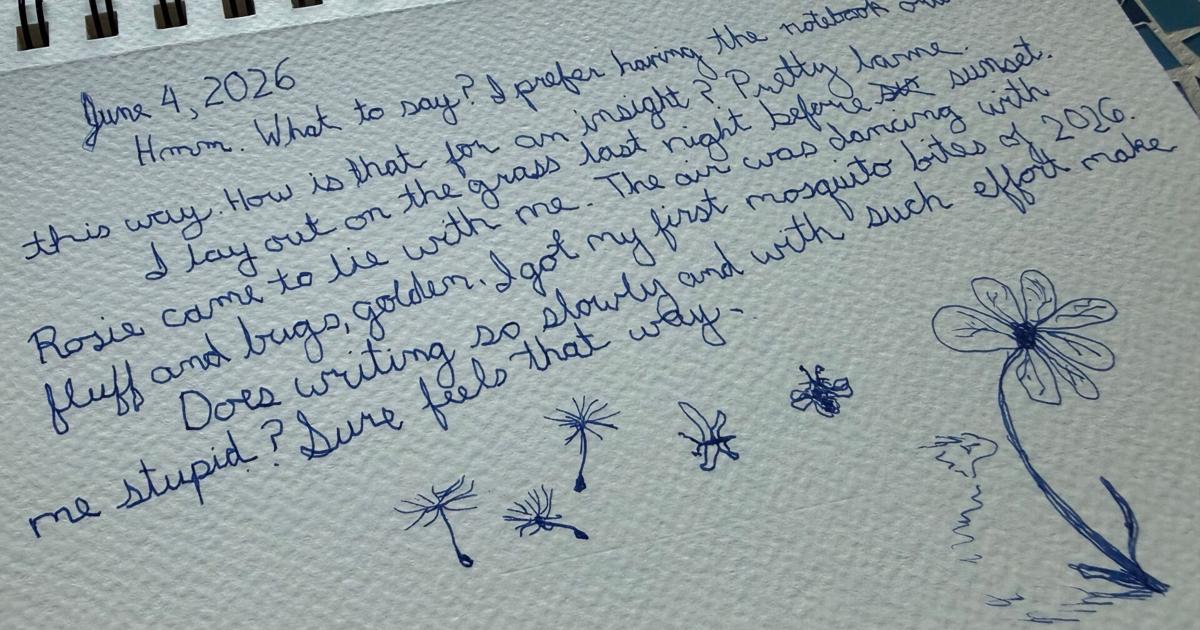 June 4, 2026
Hmm. What to say? I prefer having the notebook
this way. How is that for an insight? Pretty lame.
I lay out on the grass last night before sunset.
Rosie came to lie with me. The air was dancing with
fluff and bugs, golden. I got my first mosquito bites of 2026.
Does writing so slowly and with such effort make
me stupid? Sure feels that way.